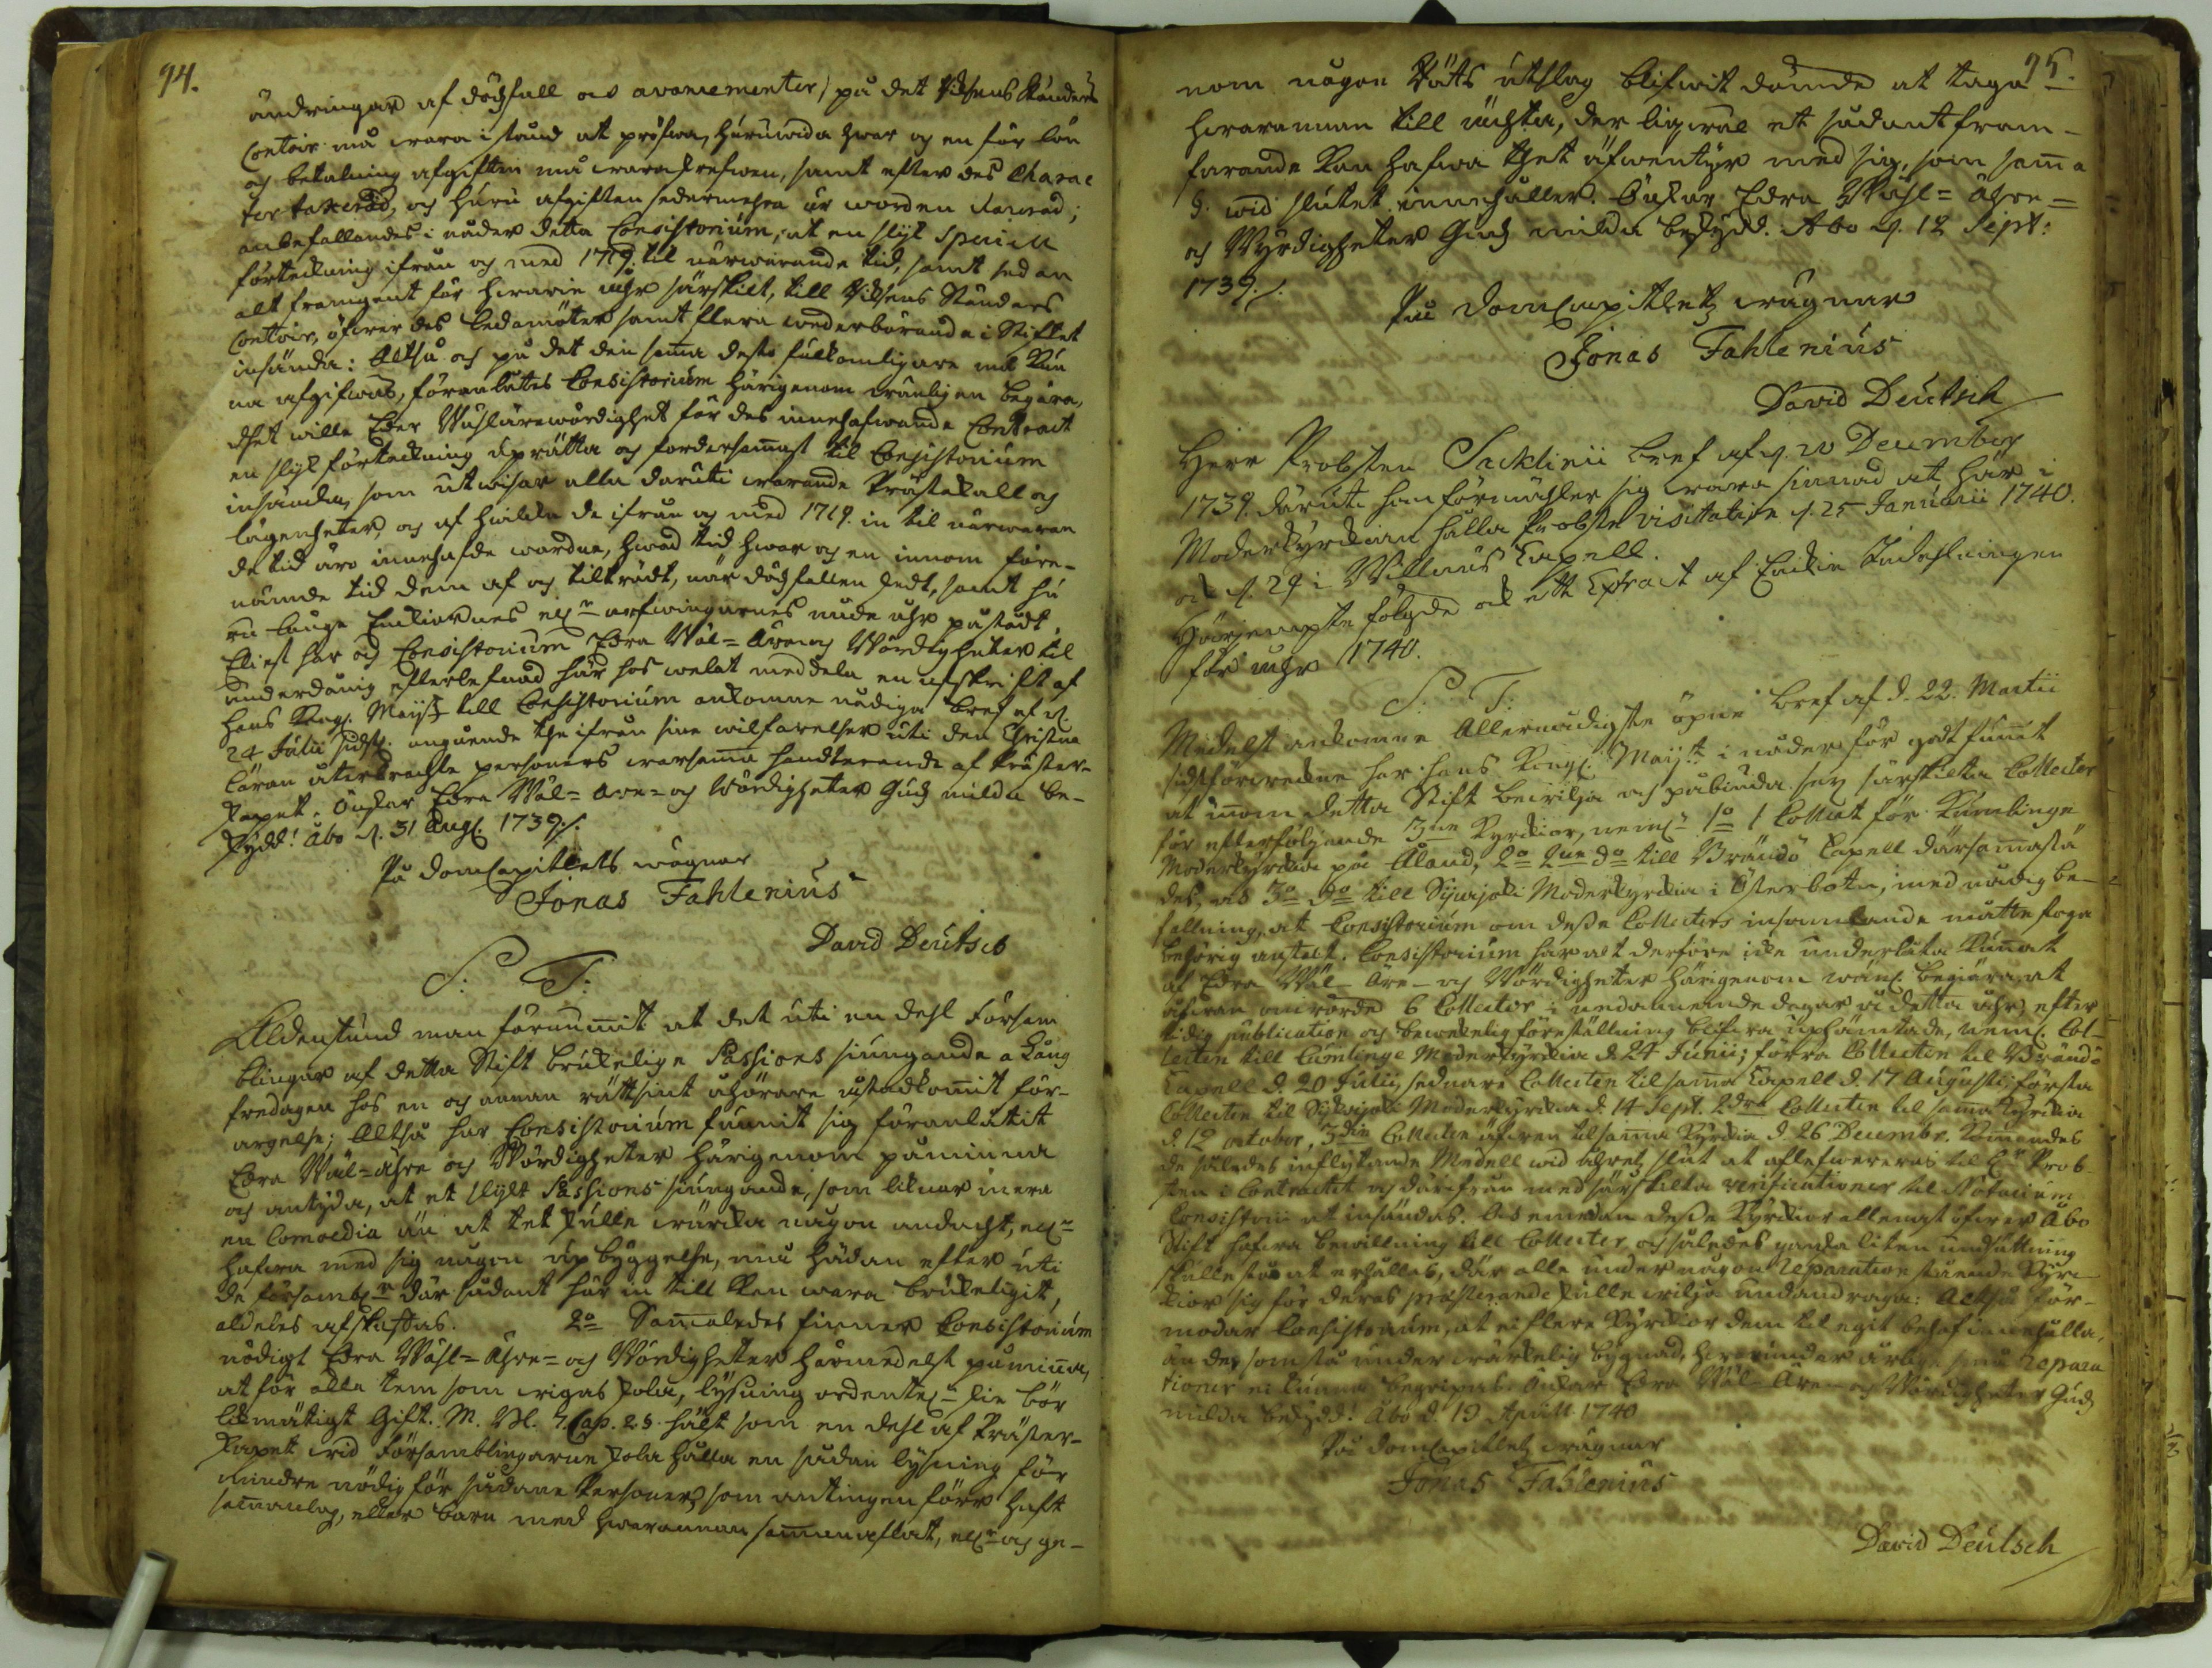 94.
ändringar af dödsfall och avancementer) på det Riksens Ständers
Contoir må wara i stånd at pröfwa, huruwida hwar och en för lön
och betalning afgiften må wara skrefwen, samt efter des Charac
ter taxerad, och huru afgiften sedermehra är worden clarerad;
anbefallandes i nåder detta Consistorium, at en slik speciell
förteckning ifrån och med 1719. til närwarande tid, samt sedan
alt framgent för hwarie åhr särskilt, till Riksens Ständers
Contoir, öfwer des Ledamöter samt flera wederbörande i Stiftet
insända: Altså och på det den samma desto fulkomligare må kun
na afgifwas, föranlåtes Consistorium härigenom wänligen begära,
dhet wille Eder Wäl­ärewördighet för des innehafwande Contract
en slik förteckning uprätta och fordersammast til Consistorium
insända, som utwisar alla däruti warande Prästekall och
lägenheter, och af hwilka de ifrån och med 1719. in til närwaran
de tid äro innehafde wordne, hwad tid hwar och en innom före-
nämde tid dem af och tilträdt, när dödsfallen skedt, samt hu
ru länge Enkiornes eller arfwingarnes nåde åhr påstådt.
Eliest har och Consistorium Edra Wäl= Äre= och Wördigheter til
underdånig efterlefnad här hos welat meddela en afskrift af
Hans Kongl. Maij:tz till Consistorium ankomne nådiga bref af d.
24 Julii sidstl. angående the ifrån sine wilfarelser uti den Christna
Läran återbrachte personers warsamma handterande af Präster-
skapet. Önskar Edra Wäl= Äre= och Wördigheter Gudz milda be-
skydd! Åbo d. 31 Aug. 1739./.
På DomCapitlets wägnar
Jonas Fahlenius
David Deutsch
S: T:
Aldenstund man förnummit at det uti en dehl Försam
blingar af detta Stift brukelige Passions siungande a Lång
fredagen hos en och annan rättsint åhörare åstadkommit för-
argelse; Altså har Consistorium funnit sig föranlåtit
Edra Wäl=Ähre och Wördigheter härigenom påminna
och antyda, at et slikt Passions siungande, som liknar mera
en Comoedia än at tet skulle wärcka någon andacht, eller
hafwa med sig någon upbyggelse, må hädan efter uti
de försambl:r där sådant här in till kan wara brukeligit,
aldeles afskaffas. 2o Sammaledes finner Consistorium
nödigt Edra Wähl= Ähre= och Wördigheter härmedelst påminna,
at för alla tem som wigas skola, lysning ordentel:n ske bör
likmätigt Gift. M. Bl. 7 Cap. 2 §. hälst som en dehl af Präster-
skapet wid Församblingarne skola hålla en sådan lysning för
mindre nödig för sådane Personer, som antingen förr haft
sammanlag, eller barn med hwarannan sammanaflat, eller och ge-
95.
nom någon Rätts utslag blifwit dömde at taga
hwarannan till ächta, der lickwäl et sådant fram-
farande kan hafwa thet äfwentyr med sig, som samma
§. wid slutet innehåller. Önskar Edra Wähl= Ähre=
och Wyrdigheter Gudz milda beskydd. Abo d. 12 Sept:
1739./.
På DomCapitletz wägnar
Jonas Fahlenius
David Deutsch
Herr Probsten Sacklinii bref af d. 20 December
1739. däruti han förmähler sig wara sinnad at här i
Moderkyrckian hålla Probste visitation d. 25 Januarii 1740.
och d. 29 i Willnäs Capell.
Härjempte fölgde och ett Extract af Enckie Indehlningen
för åhr 1740.
S: T:
Medelst ankomne Allernådigste öpne bref af d. 22. Martii
sidstförwekne har hans Kongl. Maij:tt i nåder för godt funnit
at innom detta Stift bewilja och påbiuda sex särskilta Collecter
för efterföljende 3:ne Kyrckior, neml. 1o 1 Collect för Kumlinge
Moderkyrckia på Åland, 2o 2:ne do till Brändö Capell därsammastä
des, och 3o 3 do till Sijkajocki Moderkyrckia i Österbotn, med nådig be-
fallning, at Consistorium om desse Collecters insamlande måtte foga
behörig anstalt. Consistorium har alt derföre icke underlåta kunnat
at Edra Wäl- Äre- och Wördigheter härigenom wänl. begiära, at
ofwan omrörde 6 Collecter i nedannemde dagar a detta åhr, efter
tidig publication och bewekelig föreställning blifwa uphämtade, neml. Col-
lecten till Cumlinge Moderkyrckia d. 24 Junii; förra Collecten til Brändö
Capell d. 20 Julii, sednare Collecten til samma Capell d. 17 Augusti; första
Collecten til Sijkajoki Moderkyrckia d. 14 Sept. 2:dra Collecten til samma Kyrckia
d. 12 October, 3:die Collecten äfwen til samma Kyrckia d. 26 Decembr. Kommandes
de således inflytande Medell wid åhretz slut at aflefwereras til H:r Prob-
sten i Contractet och därifrån med särskilta verificationer til Notarium
Consistorii at insändas. Och emedan desse Kyrckior allenast öfwer Åbo
Stift hafwa bewillning till Collecter, och således ganska liten undsättning
skulle stå at erhållas, där alle under någon reparation stående Kyrc
kior sig för deras præsterande skulle wilja undandraga: Altså för-
modar Consistorium, at ei flere Kyrckior dem til egit behof innehålla,
än de, som stå under wärckelig bygnad, hwarunder årlige små repara
tioner ei kunna begripas. Önskar Edra Wäl- Äre- och Wördigheter Gudz
milda beskydd! Åbo d. 19 Aprill 1740
På DomCapitletz wägnar
Jonas Fahlenius
David Deutsch